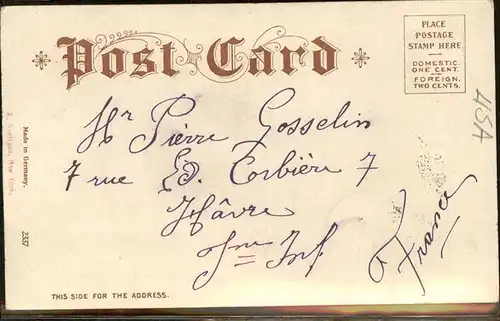 Post Card
PLACE
POSTAGE
STAMP HERE
DOMESTIC.
ONE CENT.
FOREIGN.
TWO CENTS.
USA
Mr Pierre Gosselin
7 rue Ed. Corbière 7
Hâvre
Sne Inf
France
Made in Germany.
New York.
2337
THIS SIDE FOR THE ADDRESS.